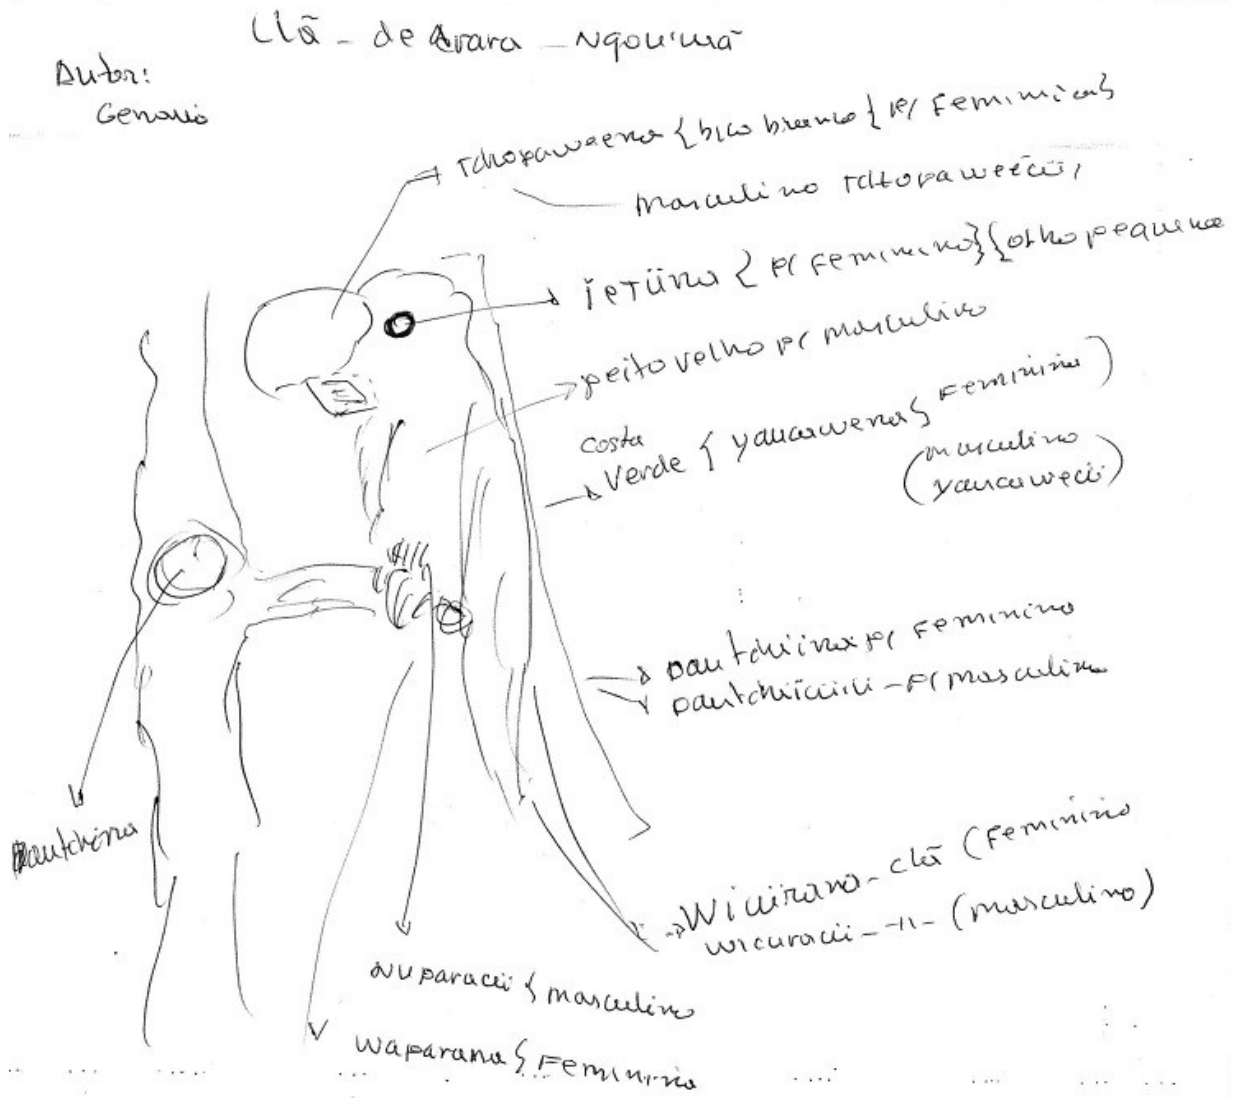 Clã - de Arara - Ngouimã
Autor:
Genario
Tchopaweena { bico branco { p/ Feminica}
Masculino Tchopaweecü,
ïetüna { p/ feminino} {olho pequena
peito velho p/ masculino
Costa
Verde { yaucawena } Feminino)
(masculino
yaucawecü)
Dautchiina p/ Feminino
p/ masculino
Dautchina
- clã (Feminino
wicuracü - 11 - (masculino)
Nuparacü { masculino
Waparana { Feminino